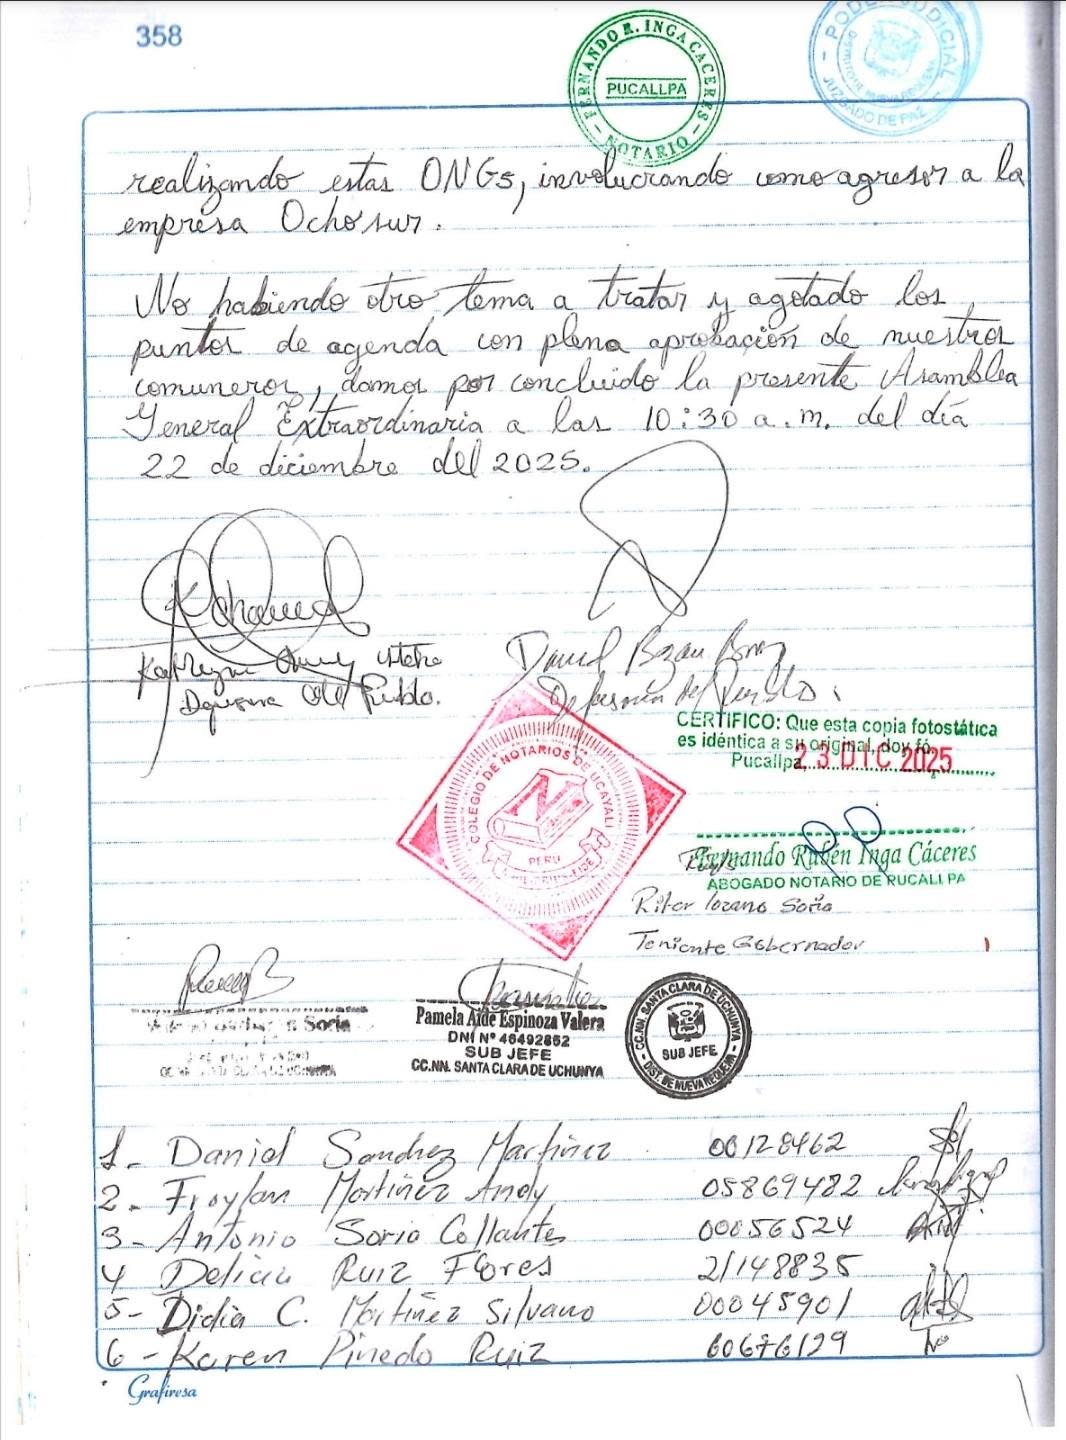 358
FERNANDO R. INGA CACERES
PUCALLPA
NOTARIO
PODER JUDICIAL
JUZGADO DE PAZ
realizando estas ONGs, involucrando como agresor a la
empresa Ochosur.
No habiendo otro tema a tratar y agotado los
puntos de agenda con plena aprobación de nuestros
comuneros, damos por concluido la presente Asamblea
General Extraordinaria a las 10:30 a.m. del día
22 de diciembre del 2025.
David Bazan
CERTIFICO: Que esta copia fotostática
es idéntica a su original, doy fé.
Pucallpa, 23 DIC 2025
COLEGIO DE NOTARIOS DE UCAYALI
N
PERU
Fernando Rubén Inga Cáceres
ABOGADO NOTARIO DE PUCALLPA
Riter lozano Soria
Teniente Gobernador
Soria
Pamela Aide Espinoza Valera
DNI Nº 46492862
SUB JEFE
CC.NN. SANTA CLARA DE UCHUNYA
CC.NN. SANTA CLARA DE UCHUNYA
SUB JEFE
DIST. DE NUEVA REQUENA
1- Daniel Sanchez Martinez 00128462
2- Froylan Martinez Andy 05869482
3- Antonio Soria Collantes 00056524
4 Delicia Ruiz Flores 21148835
5- Didia C. Martinez Silvano 00045901
6- Karen Pinedo Ruiz 60676129
Grafiresa